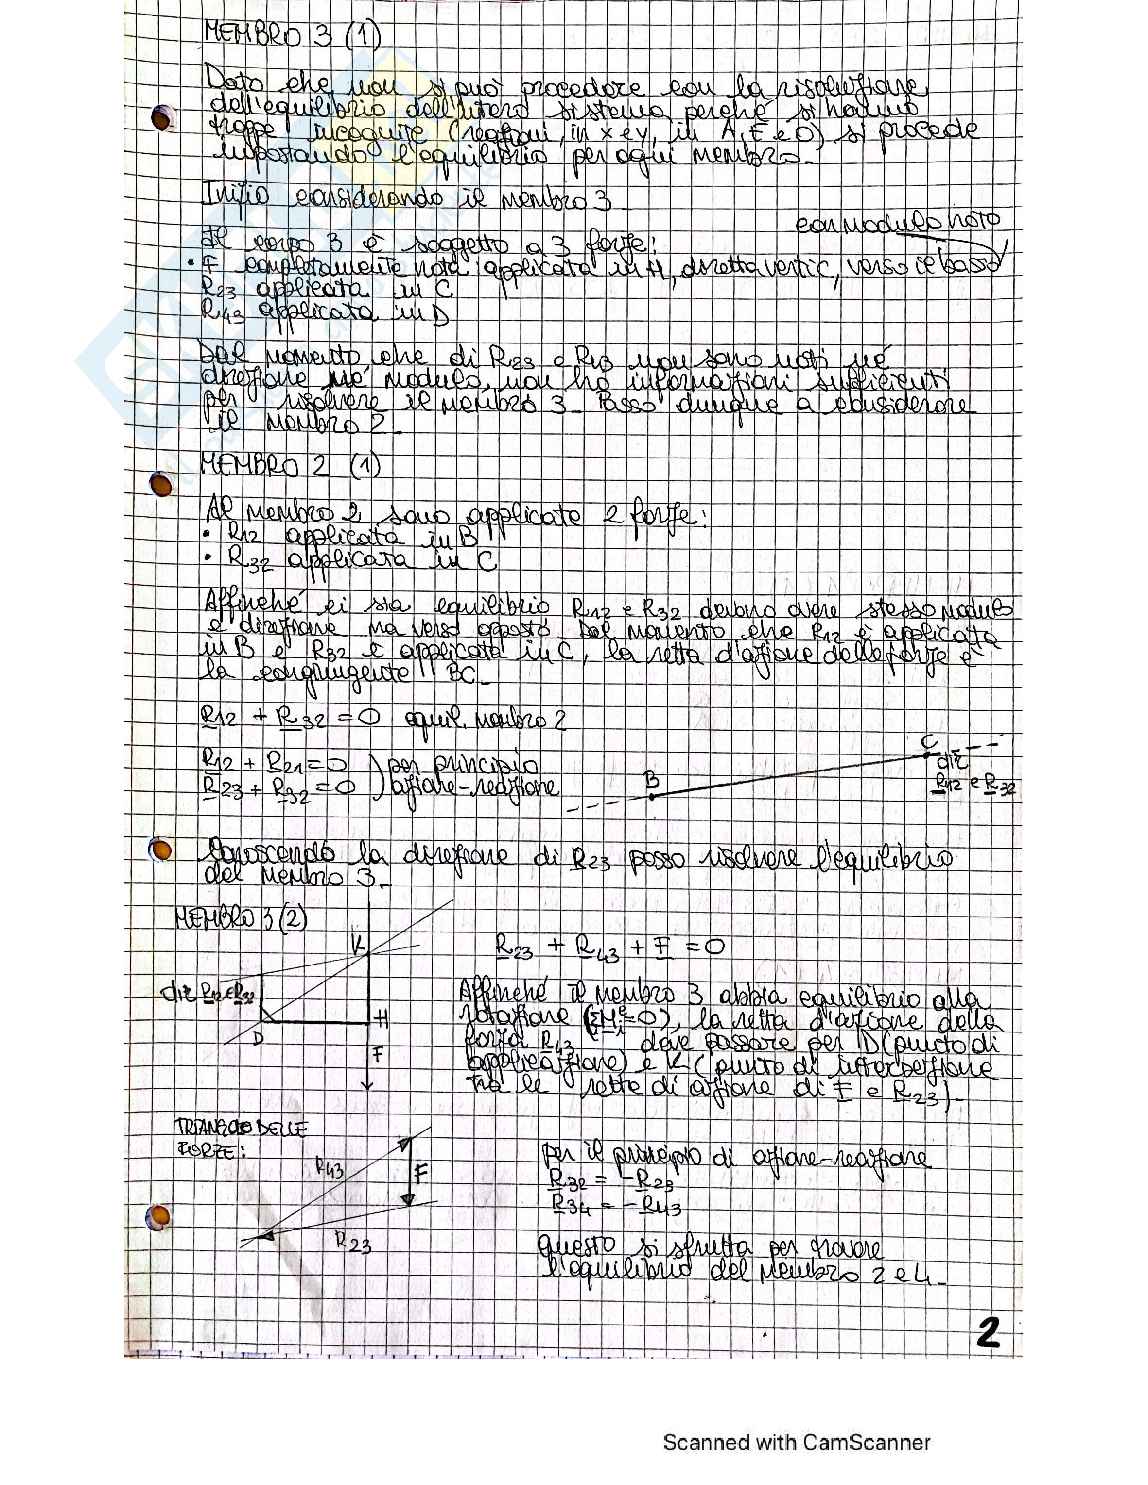 MEMBRO 3 (1)
Dato che non si può procedere con la risoluzione
dell'equilibrio dell'intero sistema perché si hanno
troppe incognite (reazioni, in x e y, in A, E e O) si procede
impostando l'equilibrio per ogni membro.
Inizio considerando il membro 3
Il corpo 3 è soggetto a 3 forze:
con modulo noto
• F completamente nota applicata in H, diretta vertic, verso il basso
R23 applicata in C
R43 applicata in D
Dal momento che di R23 e R43 non sono noti né
direzione né modulo, non ho informazioni sufficienti
per risolvere il membro 3. Passo dunque a considerare
il membro 2.
MEMBRO 2 (1)
Al membro 2, sono applicate 2 forze:
• R12 applicata in B
• R32 applicata in C
Affinché ci sia equilibrio R12 e R32 devono avere stesso modulo
e direzione ma verso opposto. Dal momento che R12 è applicata
in B e R32 è applicata in C, la retta d'azione delle forze è
la congiungente BC.
R12 + R32 = 0 equil. membro 2
R12 + R21 = 0 ) per principio
R23 + R32 = 0 ) azione-reazione
B
C
dir
R12 e R32
Conoscendo la direzione di R23 posso risolvere l'equilibrio
del membro 3.
MEMBRO 3 (2)
K
dir R12 e R32
H
D
F
R23 + R43 + F = 0
Affinché il membro 3 abbia equilibrio alla
rotazione (ΣM=0), la retta d'azione della
forza R43 deve passare per D (punto di
applicazione) e K (punto di intersezione
tra le rette di azione di F e R23).
TRIANGOLO DELLE
FORZE:
R43
F
R23
per il principio di azione-reazione
R32 = -R23
R34 = -R43
questo si sfrutta per trovare
l'equilibrio del membro 2 e 4.
2
Scanned with CamScanner